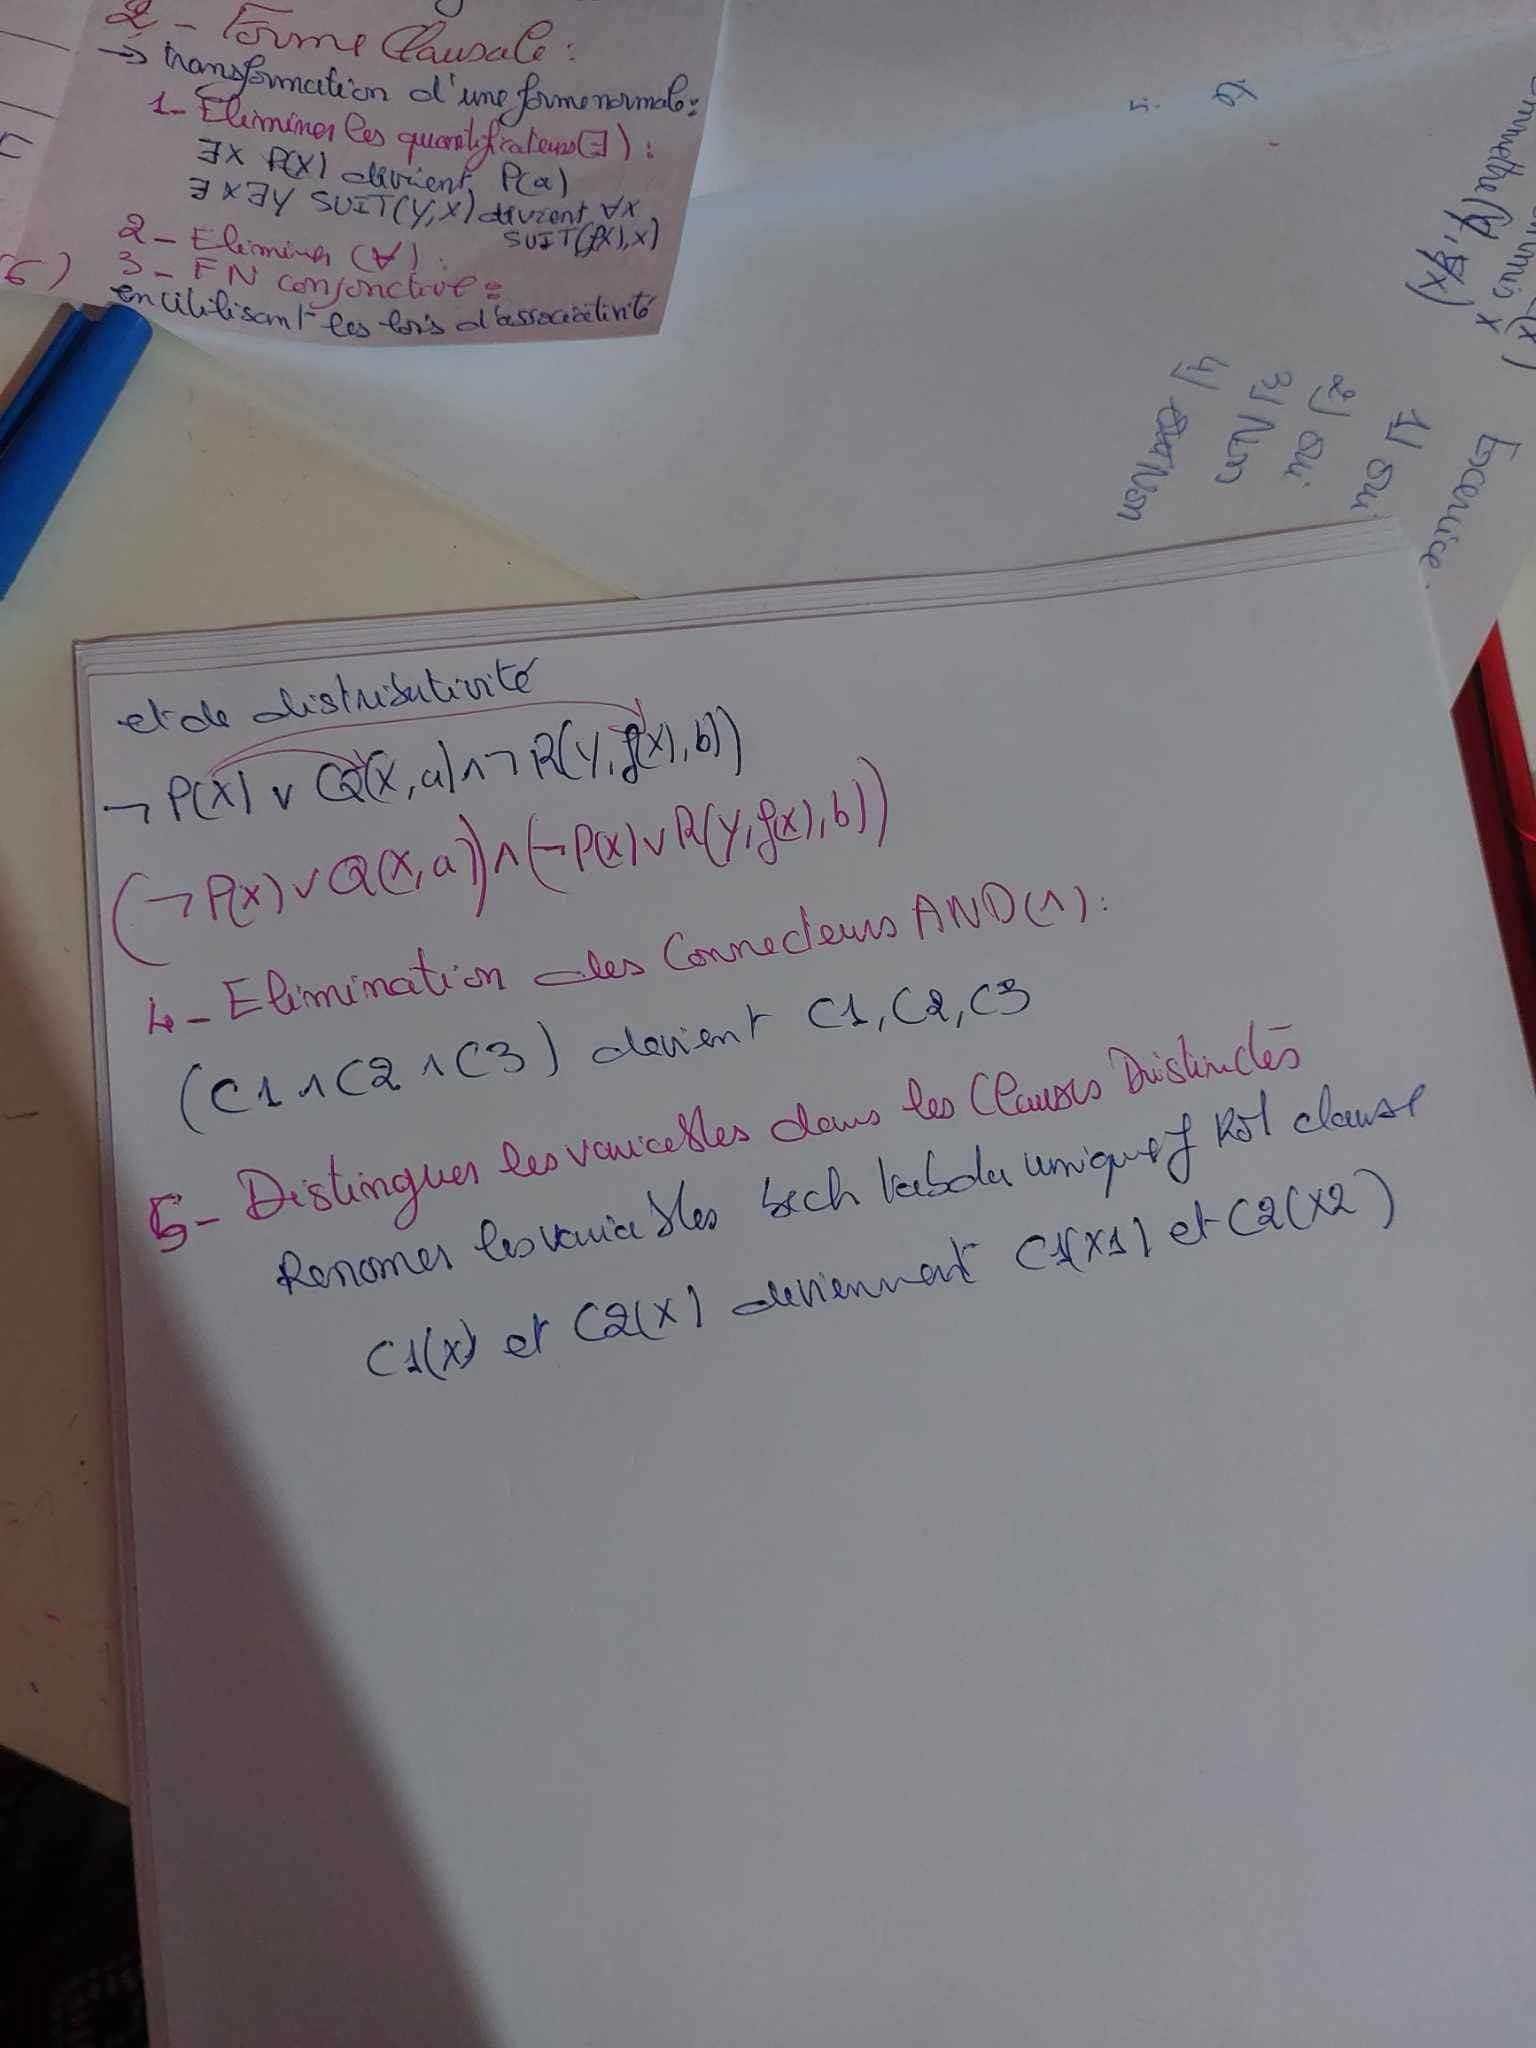 2 - Forme Clausale:
→ transformation d'une forme normale:
1- Eliminer les quantificateurs (∃):
∃X P(X) devient P(a)
∃X∃Y SUIT(Y,X) devient ∀X
SUIT(f(X),X)
2- Eliminer (∀):
3- FN conjonctive:
en utilisant les lois d'associativité
et de distributivité
¬P(X) ∨ (Q(X,a) ∧ ¬R(Y,f(X),b))
(¬P(X) ∨ Q(X,a)) ∧ (¬P(X) ∨ R(Y,f(X),b))
4- Elimination des Connecteurs AND(∧):
(C1 ∧ C2 ∧ C3) devient C1, C2, C3
5- Distinguer les variables dans les Clauses Distinctes
Renomer les variables bech kabda unique f kol clause
C1(X) et C2(X) deviennent C1(X1) et C2(X2)
Exercice
1) oui
2) oui
3) Non
4) Non